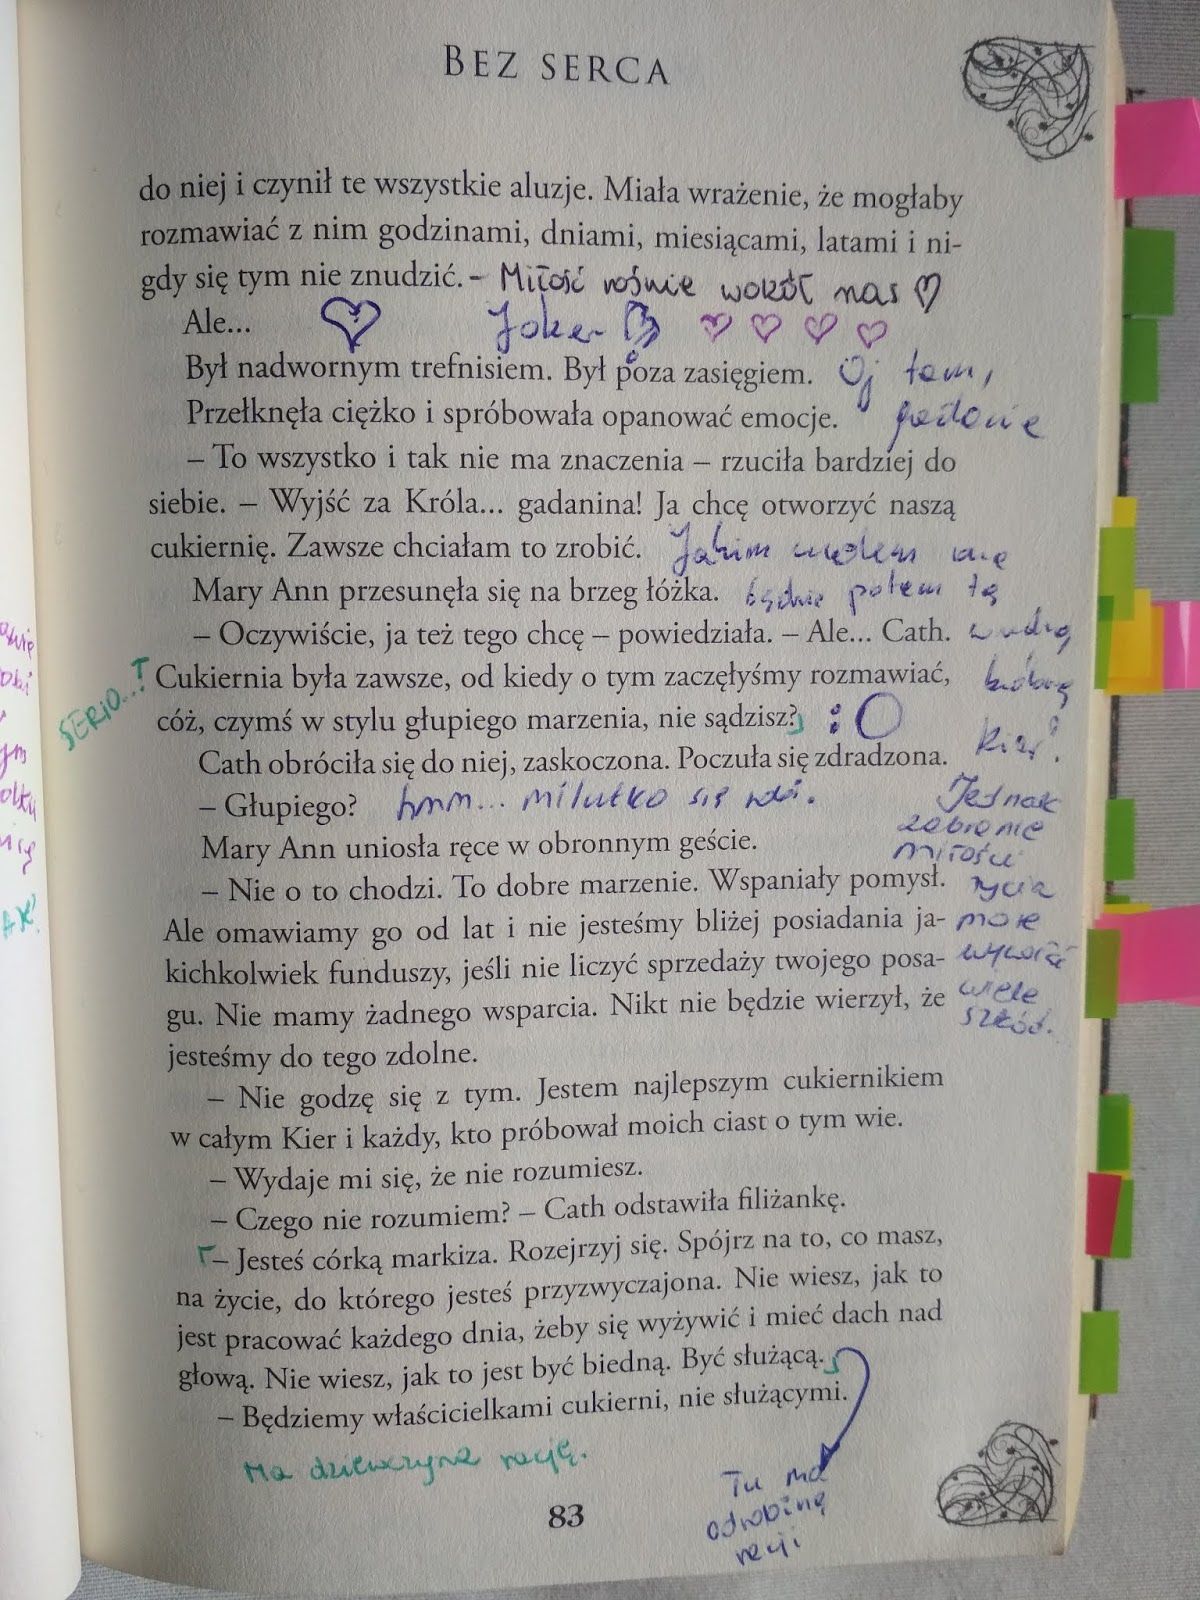 BEZ SERCA
do niej i czynił te wszystkie aluzje. Miała wrażenie, że mogłaby
rozmawiać z nim godzinami, dniami, miesiącami, latami i ni-
gdy się tym nie znudzić. - Miłość rośnie wokół nas
Ale...
Joker
Był nadwornym trefnisiem. Był poza zasięgiem. Oj tam,
Przełknęła ciężko i spróbowała opanować emocje. gadanie
– To wszystko i tak nie ma znaczenia – rzuciła bardziej do
siebie. – Wyjść za Króla... gadanina! Ja chcę otworzyć naszą
cukiernię. Zawsze chciałam to zrobić. Jakim cudem ona
Mary Ann przesunęła się na brzeg łóżka. będzie potem tą
– Oczywiście, ja też tego chcę – powiedziała. – Ale... Cath. wredną
SERIO..?
Cukiernia była zawsze, od kiedy o tym zaczęłyśmy rozmawiać, królową
cóż, czymś w stylu głupiego marzenia, nie sądzisz? :O
Kier?
Cath obróciła się do niej, zaskoczona. Poczuła się zdradzona.
– Głupiego? hmm... milutko się robi.
Jednak
zabranie
miłości
życia
może
wyrządzić
wiele
szkód.
Mary Ann uniosła ręce w obronnym geście.
– Nie o to chodzi. To dobre marzenie. Wspaniały pomysł.
Ale omawiamy go od lat i nie jesteśmy bliżej posiadania ja-
kichkolwiek funduszy, jeśli nie liczyć sprzedaży twojego posa-
gu. Nie mamy żadnego wsparcia. Nikt nie będzie wierzył, że
jesteśmy do tego zdolne.
– Nie godzę się z tym. Jestem najlepszym cukiernikiem
w całym Kier i każdy, kto próbował moich ciast o tym wie.
– Wydaje mi się, że nie rozumiesz.
– Czego nie rozumiem? – Cath odstawiła filiżankę.
– Jesteś córką markiza. Rozejrzyj się. Spójrz na to, co masz,
na życie, do którego jesteś przyzwyczajona. Nie wiesz, jak to
jest pracować każdego dnia, żeby się wyżywić i mieć dach nad
głową. Nie wiesz, jak to jest być biedną. Być służącą.
– Będziemy właścicielkami cukierni, nie służącymi.
Ma dziewczyna rację.
Tu ma
odrobinę
racji
83